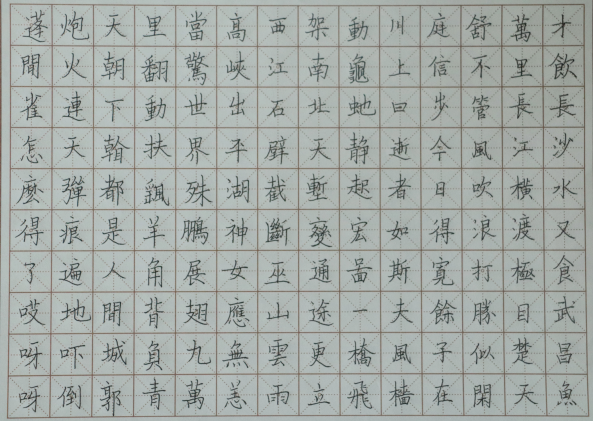 才飲長沙水又食武昌魚
萬里長江橫渡極目楚天
舒不管風吹浪打勝似閑
庭信步今日得寬餘子在
川上曰逝者如斯夫風檣
動龜虵静起宏啚一橋飛
架南北天塹變通途更立
西江石壁截斷巫山雲雨
高峽出平湖神女應無恙
當驚世界殊鵬展翅九萬
里翻動扶飖羊角背負青
天朝下看都是人間城郭
炮火連天彈痕遍地吓倒
蓬間雀怎麼得了哎呀呀